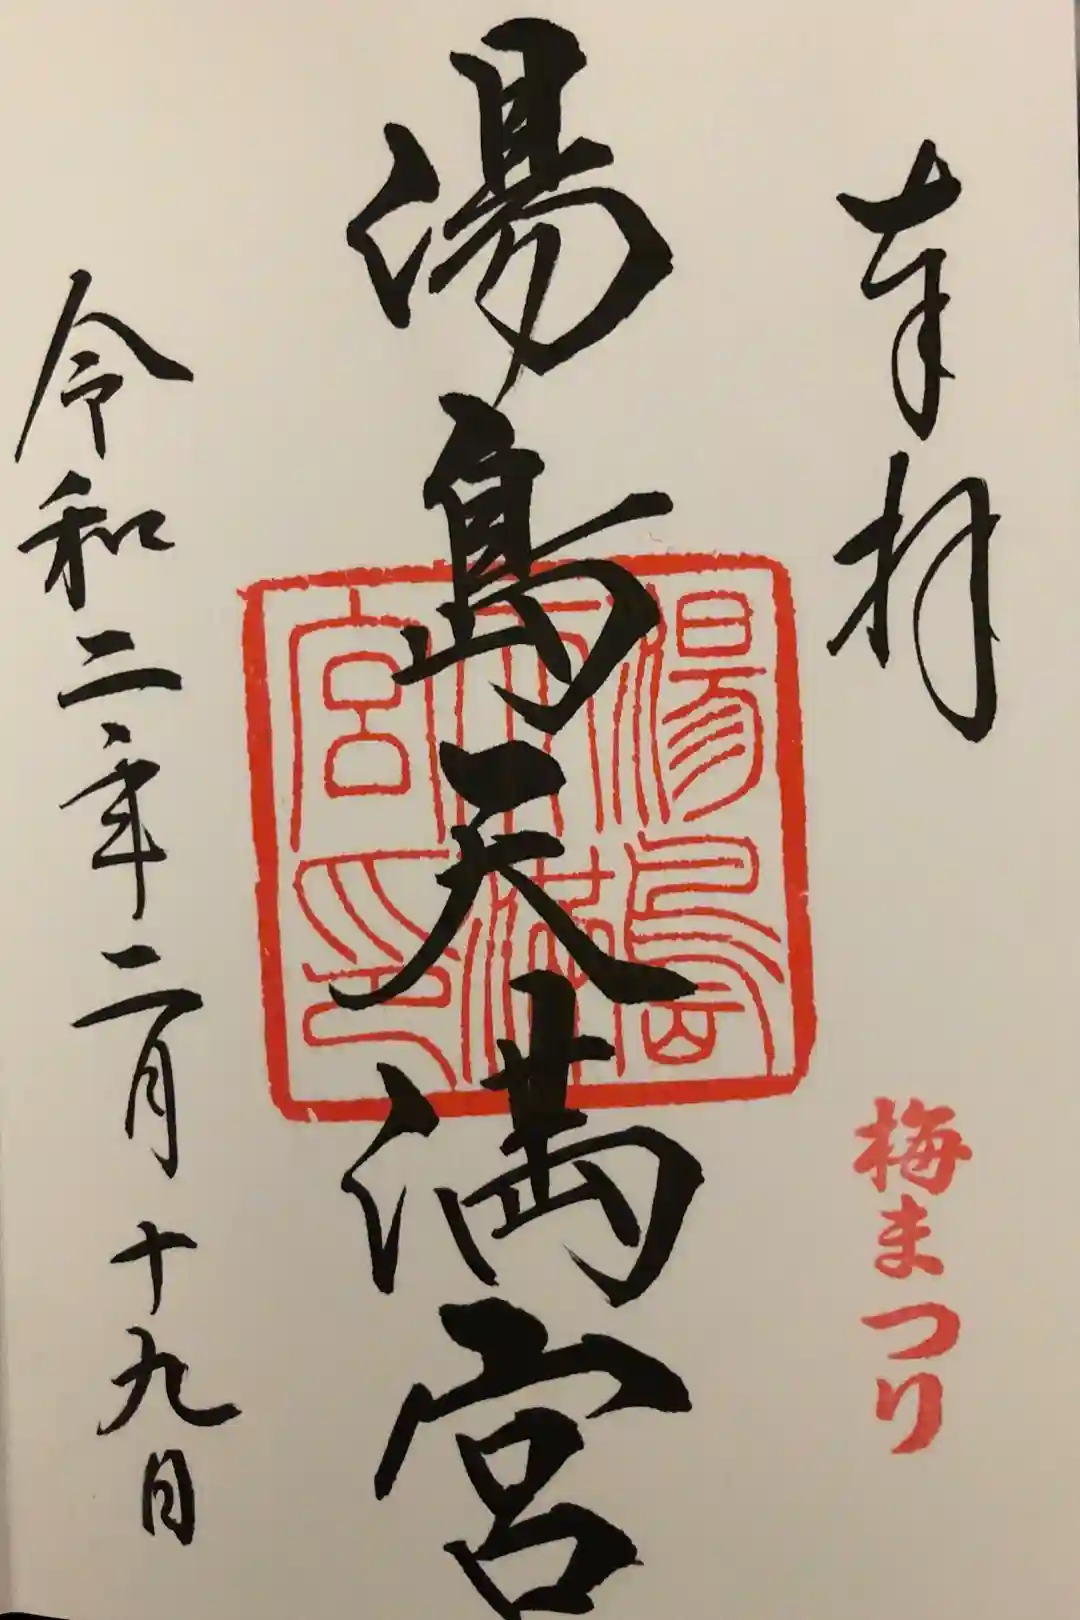 奉拝
梅まつり
湯島天満宮
湯島
天満
宮印
令和二年二月十九日